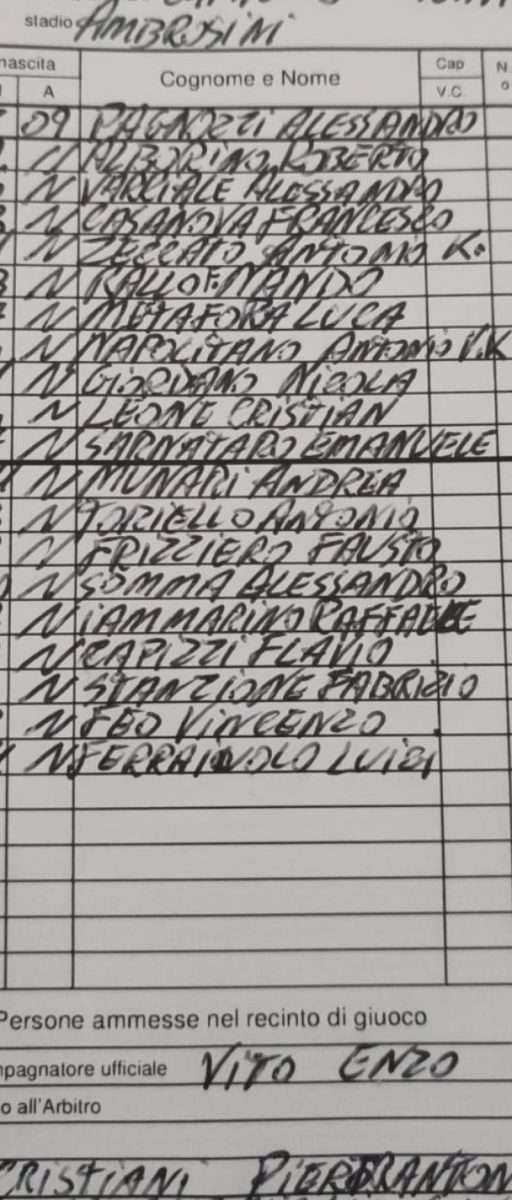 stadio AMBROSINI
nascita Cognome e Nome Cap N.
A V.C. o
09 PAGNOZZI ALESSANDRO
" ALBORINO ROBERTO
" VARCIALE ALESSANDRO
" CASANOVA FRANCESCO
" ZECCATO ANTONIO K.
" RALLO F.NANDO
" METAFORA LUCA
" NAPOLITANO ANTONIO V.K
" GIORDANO NICOLA
" LEONE CRISTIAN
" SARNATARO EMANUELE
" MUNARI ANDREA
" TORIELLO ANTONIO
" FRIZZIERO FAUSTO
" SOMMA ALESSANDRO
" IAMMARINO RAFFAELE
" CAPIZZI FLAVIO
" STANZIONE FABRIZIO
" FEO VINCENZO
" FERRAIUOLO LUIGI
Persone ammesse nel recinto di giuoco
mpagnatore ufficiale VITO ENZO
o all'Arbitro
CRISTIANI PIERFRANTON